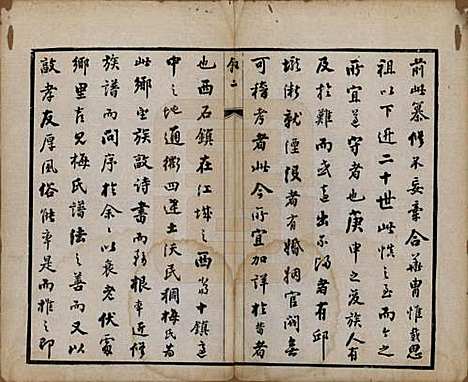 前此纂修不妄牵合華胄惟我思
祖以下近二十世此慎之至而今之
所宜遵守者也庚申之变族人有
及於難而或遠出不歸者有邱
壠漸就湮沒者有婚姻官閥無
可稽考者此今所宜加詳於昔者
叙二
也西石鎮在江城之西 十鎮
中之地通衢四達土沃民稠梅氏
此鄉望族敦詩書而務根本近修
族譜而问序於余余以衰老伏處
鄉里喜见梅氏譜法之善而又以
敦孝友厚風俗能率是而推之即